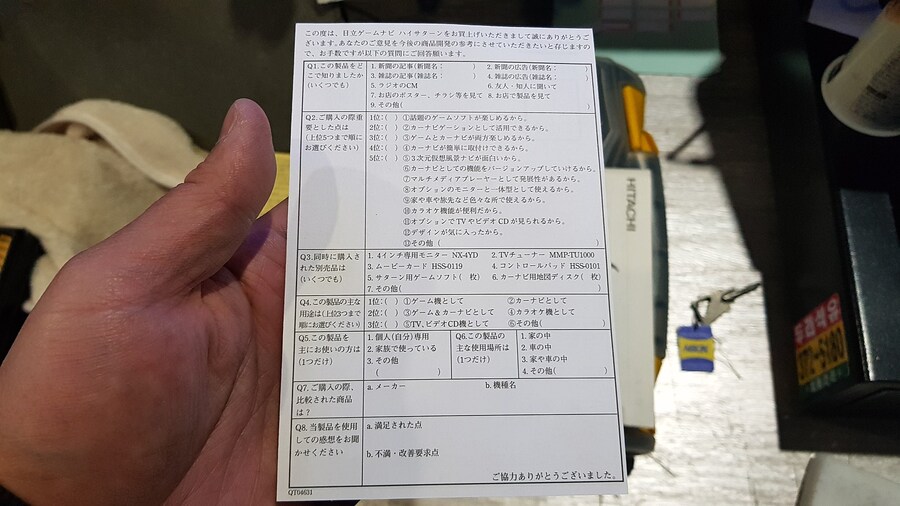 この度は、日立ゲームナビ ハイサターンをお買上げいただきまして誠にありがとう
ございます。あなたのご意見を今後の商品開発の参考にさせていただきたいと存じますの
で、お手数ですが以下の質問にご回答願います。
Q1.この製品をど
こで知りましたか
(いくつでも)
1. 新聞の記事(新聞名: ) 2. 新聞の広告(新聞名: )
3. 雑誌の記事(雑誌名: ) 4. 雑誌の広告(雑誌名: )
5. ラジオのCM 6. 友人・知人に聞いて
7. お店のポスター、チラシ等を見て 8. お店で製品を見て
9. その他( )
Q2.ご購入の際重
要とした点は
(上位5つまで順に
お選びください)
1位:( ) ①話題のゲームソフトが楽しめるから。
2位:( ) ②カーナビゲーションとして活用できるから。
3位:( ) ③ゲームとカーナビが両方楽しめるから。
4位:( ) ④カーナビが簡単に取付けできるから。
5位:( ) ⑤3次元仮想風景ナビが面白いから。
⑥カーナビとしての機能をバージョンアップしていけるから。
⑦マルチメディアプレーヤーとして発展性があるから。
⑧オプションのモニターと一体型として使えるから。
⑨家や車や旅先など色々な所で使えるから。
⑩カラオケ機能が便利だから。
⑪オプションでTVやビデオCDが見られるから。
⑫デザインが気に入ったから。
⑬その他( )
Q3.同時に購入さ
れた別売品は
(いくつでも)
1. 4インチ専用モニター NX-4YD 2. TVチューナー MMP-TU1000
3. ムービーカード HSS-0119 4. コントロールパッド HSS-0101
5. サターン用ゲームソフト( 枚) 6. カーナビ用地図ディスク( 枚)
7. その他( )
Q4.この製品の主な
用途は(上位3つまで
順にお選びください)
1位:( ) ①ゲーム機として ②カーナビとして
2位:( ) ③ゲーム&カーナビとして ④カラオケ機として
3位:( ) ⑤TV、ビデオCD機として ⑥その他( )
Q5.この製品を
主にお使いの方は
(1つだけ)
1. 個人(自分)専用
2. 家族で使っている
3. その他
( )
Q6.この製品の
主な使用場所は
(1つだけ)
1. 家の中
2. 車の中
3. 家や車の中
4. その他( )
Q7.ご購入の際、
比較された商品
は?
a. メーカー b. 機種名
Q8. 当製品を使用
しての感想をお聞
かせください
a. 満足された点
b. 不満・改善要求点
ご協力ありがとうございました。
QT04631
HITACHI
두레석유